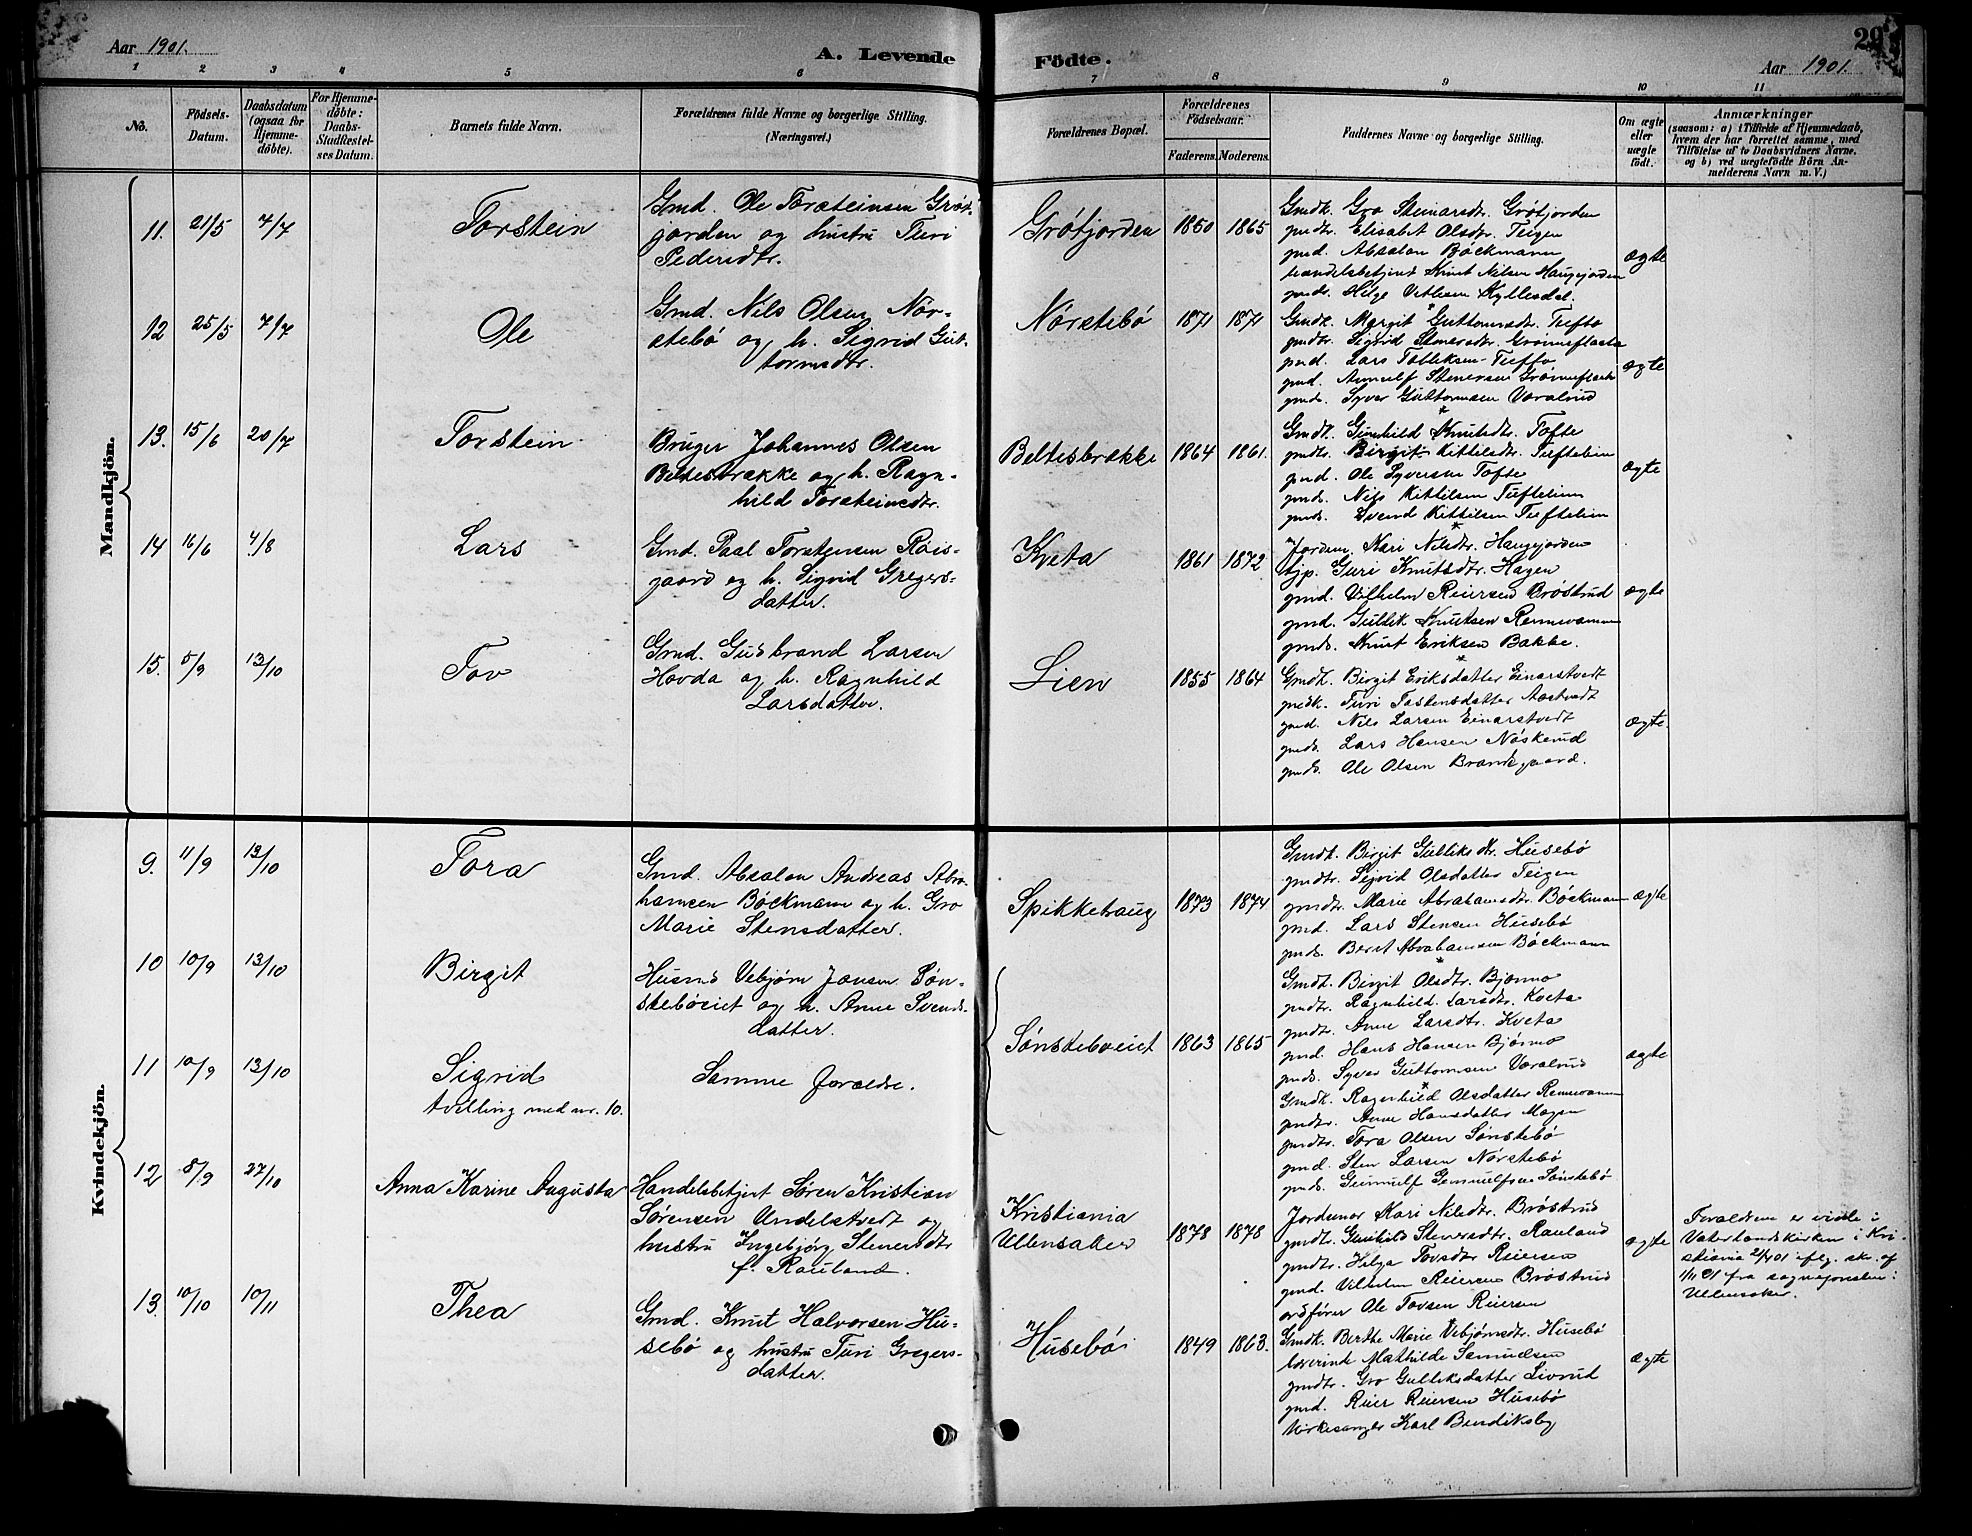 Aar 1901.
A. Levende Födte.
29
Aar 1901.
1 2 3 4 5 6 7 8 9 10 11
No.
Födsels-Datum.
Daabsdatum (ogsaa for Hjemme-döbte).
For Hjemme-döbte: Daabs-Stadfæstel-ses Datum.
Barnets fulde Navn.
Forældrenes fulde Navne og borgerlige Stilling.
(Næringsvei.)
Forældrenes Bopæl.
Forældrenes Födselsaar.
Faderens. Moderens.
Faddernes Navne og borgerlige Stilling.
Om ægte eller uægte födt.
Anmærkninger
(saasom: a) i Tilfælde af Hjemmedaab,
hvem der har forrettet samme, med
Tilföielse af to Daabsvidners Navne.
og b) ved uægtefödte Börn An-
melderens Navn m. V.)
Mandkjön.
11. 21/5 7/7 Torstein
Gmd. Ole Torsteinsen Gröt-
jorden og hustru Turi
Pedersdtr.
Grötjorden 1850 1865
Gmdk. Gro Steinarsdtr. Grötjorden
gmdtr. Elisabet Olsdtr. Teigen
gmd. Absalon Böckmann
handelsbetjent Knut Nilsen Haugejorden
gmds. Helge Vetlesen Kyllesdal.
ægte
12 25/5 7/7 Ole
Gmd. Nils Olsen Nör-
stebö og h. Sigrid Gut-
tormsdtr.
Nörstebö 1871 1871
Gmdk. Margit Guttormsdtr. Tufto
gmdtr. Sigrid Stenersdtr. Grönneflaata
gmd. Lars Tolleksen Tufto
gmd. Arnulf Stenersen Grönneflaata
gmds. Syver Guttormsen Varalrud
ægte
13. 15/6 20/7 Torstein
Bruger Johannes Olsen
Beltesbrække og h. Ragn-
hild Torsteinsdtr.
Beltesbrække 1864 1861.
Gmdk. Gunhild Knutsdtr. Tofte
gmdtr. Birgit Kittilsdtr. Tuftelien
gmd. Ole Syversen Tofte
gmds. Nils Kittilsen Tuftelien
gmds. Svend Kittilsen Tuftelien
ægte
14 16/6 4/8 Lars
Gmd. Paal Torstensen Röis-
gaard og h. Sigrid Gregers-
datter.
Kveta 1861 1872
Jordem. Kari Nilsdtr. Haugejorden
tjp. Guri Knutsdtr. Hagen
gmd. Vilhelm Reiersen Bröstrud
gmd. Gullik Knutsen Rennevamm
gmds. Knut Eriksen Bakke.
ægte
15. 5/9 13/10 Tov
Gmd. Gudbrand Larsen
Hovda og h. Ragnhild
Larsdatter.
Lien 1855 1864
Gmdk. Birgit Eriksdatter Einarstvedt
gmdk. Turi Tostensdatter Aastvedt
gmd. Nils Larsen Einarstvedt
gmds. Lars Hansen Nöskerud
gmds. Ole Olsen Brandtgaard.
ægte
Kvindekjön.
9. 11/9 13/10 Tora
Gmd. Absalon Andreas Abra-
hamsen Böckmann og h. Gro
Marie Stensdatter.
Spikkehaug 1873 1874
Gmdk. Birgit Gulliksdtr. Husebö
gmdtr. Sigrid Olsdatter Teigen
gmdtr. Marie Abrahamsdtr. Böckmann
gmd. Lars Stensen Husebö
gmds. Bernt Abrahamsen Böckmann
ægte
10 10/9 13/10 Birgit
Husmd Vebjörn Jonsen Sön-
steböeiet og h. Anne Svends-
datter.
Sönsteböeiet 1863 1865
Gmdk. Birgit Olsdtr. Bjönno
gmdtr. Ragnhild Larsdtr. Kveta
gmdtr. Anne Larsdtr. Kveta
gmd. Hans Hansen Bjönno
gmds. Syver Guttormsen Varalrud
ægte
11 10/9 13/10 Sigrid
tvilling med nr. 10.
Samme foraeldre.
Gmdk. Ragnhild Olsdatter Rennevamm
gmdtr. Anne Hansdatter Mogen
gmdtr. Tora Olsen Sönstebö
gmd. Sten Larsen Nörstebö
gmds. Gunnulf Gunnulfsen Sönstebö
12 8/9 27/10 Anna Karine Augusta
Handelsbetjent Sören Kristian
Sörensen Undelstvedt og
hustru Ingebjörg Stenersdtr
f. Rauland.
Kristiania
Ullensaker 1878 1878
Jordemor Kari Nilsdtr. Bröstrud
gmdtr. Gunhild Stenersdtr. Rauland
gmdtr. Helga Tovsdtr Reiersen
gmd. Vilhelm Reiersen Bröstrud
ordförer Ole Tovsen Reiersen
ægte
Foraeldrene er viede i
Vaterlandskirken i Kri-
stiania 21/4 01 iflg. skr. af
1/11 01 fra sognepresten i
Ullensaker.
13. 10/10 10/11 Thea
Gmd. Knut Halvorsen Hu-
sebö og hustru Turi Gregers-
datter.
Husebö 1849 1863.
Gmdk. Berthe Marie Vebjörnsdtr. Husebö
lærerinde Mathilde Samuelsen
gmdtr. Gro Gulliksdatter Livrud
gmd. Reier Reiersen Husebö
kirkesanger Karl Bendiksby
ægte